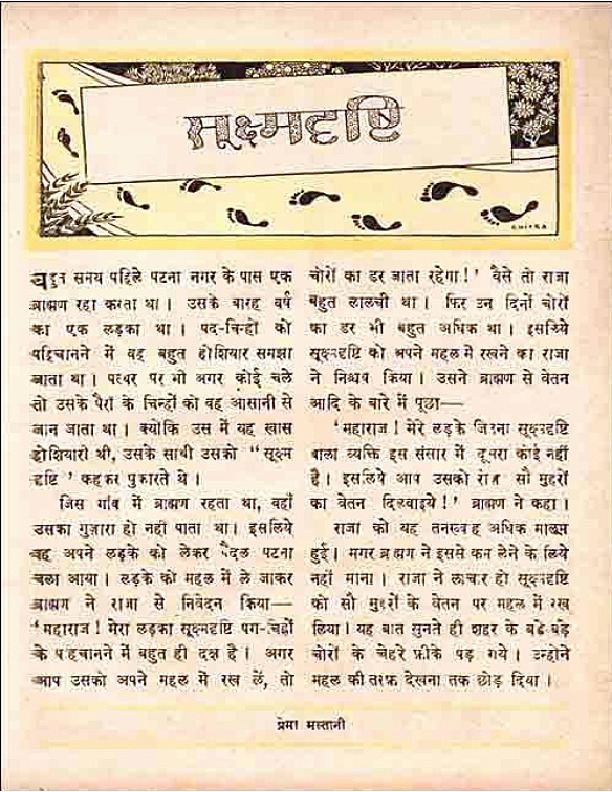 सूक्ष्मदृष्टि
CHITRA
बहुत समय पहिले पटना नगर के पास एक
ब्राह्मण रहा करता था । उसके बारह वर्ष
का एक लड़का था । पद-चिन्हों को
पहिचानने में वह बहुत होशियार समझा
जाता था । पत्थर पर भी अगर कोई चले
तो उसके पैरों के चिन्हों को वह आसानी से
जान जाता था । क्योंकि उस में यह खास
होशियारी थी, उसके साथी उसको "सूक्ष्म
दृष्टि ' कहकर पुकारते थे ।
जिस गाँव में ब्राह्मण रहता था, वहाँ
उसका गुज़ारा हो नहीं पाता था । इसलिये
वह अपने लड़के को लेकर पैदल पटना
चला आया । लड़के को महल में ले जाकर
ब्राह्मण ने राजा से निवेदन किया—
'महाराज ! मेरा लड़का सूक्ष्मदृष्टि पग-चिह्नों
के पहचानने में बहुत ही दक्ष है । अगर
आप उसको अपने महल में रख लें, तो
चोरों का डर जाता रहेगा ! ' वैसे तो राजा
बहुत लालची था । फिर उन दिनों चोरों
का डर भी बहुत अधिक था । इसलिये
सूक्ष्मदृष्टि को अपने महल में रखने का राजा
ने निश्चय किया । उसने ब्राह्मण से वेतन
आदि के बारे में पूछा—
'महाराज ! मेरे लड़के जितना सूक्ष्मदृष्टि
वाला व्यक्ति इस संसार में दूसरा कोई नहीं
है । इसलिये आप उसको रोज़ सौ मुहरों
का वेतन दिलवाइये ! ' ब्राह्मण ने कहा ।
राजा को यह तनख्वाह अधिक मालूम
हुई । मगर ब्राह्मण ने इससे कम लेने के लिये
नहीं माना । राजा ने लाचार हो सूक्ष्मदृष्टि
को सौ मुहरों के वेतन पर महल में रख
लिया । यह बात सुनते ही शहर के बड़े-बड़े
चोरों के चेहरे फ़ीके पड़ गये । उन्होंने
महल की तरफ़ देखना तक छोड़ दिया ।
प्रेमा मस्तानी